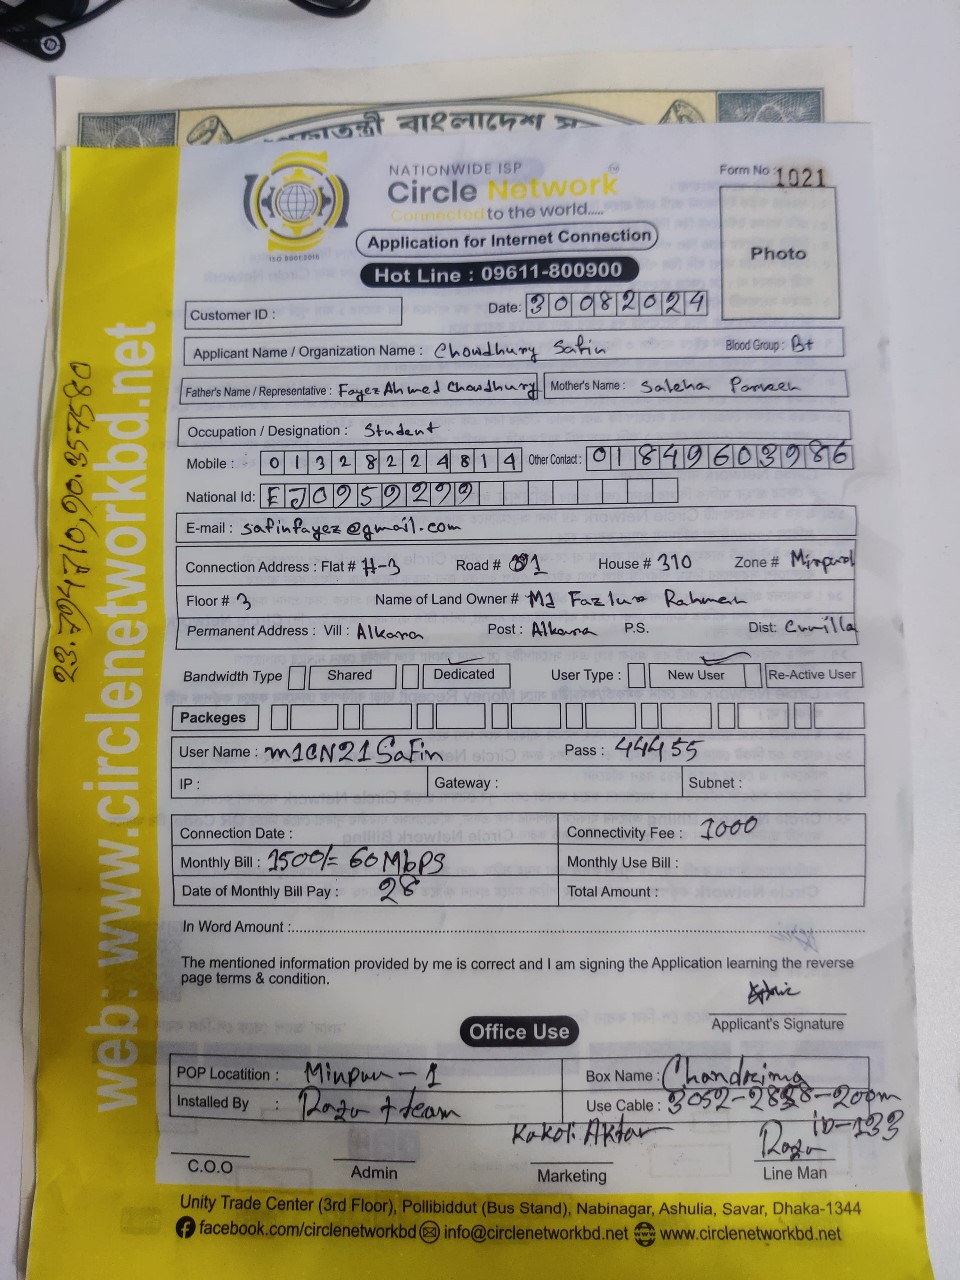 বাংলাদেশ
NATIONWIDE ISP
Circle Network
Connected to the world.....
Form No : 1021
Application for Internet Connection
Photo
Hot Line : 09611-800900
ISO 9001:2015
Customer ID :
Date: 30082024
Applicant Name / Organization Name : Choudhury Safin Blood Group : B+
Father's Name / Representative : Fayez Ahmed Chowdhury Mother's Name : Saleha Parveen
Occupation / Designation : Student
Mobile : 01328224814 Other Contact : 01849603986
National Id: EJ0959299
E-mail : safinfayez@gmail.com
Connection Address : Flat # H-3 Road # 01 House # 310 Zone #
Floor # 3 Name of Land Owner # Md Fazlur Rahman
Permanent Address : Vill : Alkara Post : Alkara P.S. Dist: Cumilla
Bandwidth Type Shared Dedicated User Type : New User Re-Active User
Packeges
User Name : m1CN21Safin Pass : 44455
IP : Gateway : Subnet :
Connection Date : Connectivity Fee : 1000
Monthly Bill : 1500/= 60 Mbps Monthly Use Bill :
Date of Monthly Bill Pay : 28 Total Amount :
In Word Amount :
The mentioned information provided by me is correct and I am signing the Application learning the reverse
page terms & condition.
Applicant's Signature
Office Use
POP Locatition : Mirpur - 1 Box Name : Chandrima
Installed By : Razu + team Use Cable : 3052-2838-200m
Kakoli Aktar Razu ID-133
C.O.O Admin Marketing Line Man
Unity Trade Center (3rd Floor), Pollibiddut (Bus Stand), Nabinagar, Ashulia, Savar, Dhaka-1344
facebook.com/circlenetworkbd info@circlenetworkbd.net www.circlenetworkbd.net
web: www.circlenetworkbd.net
23.794710,90.357580